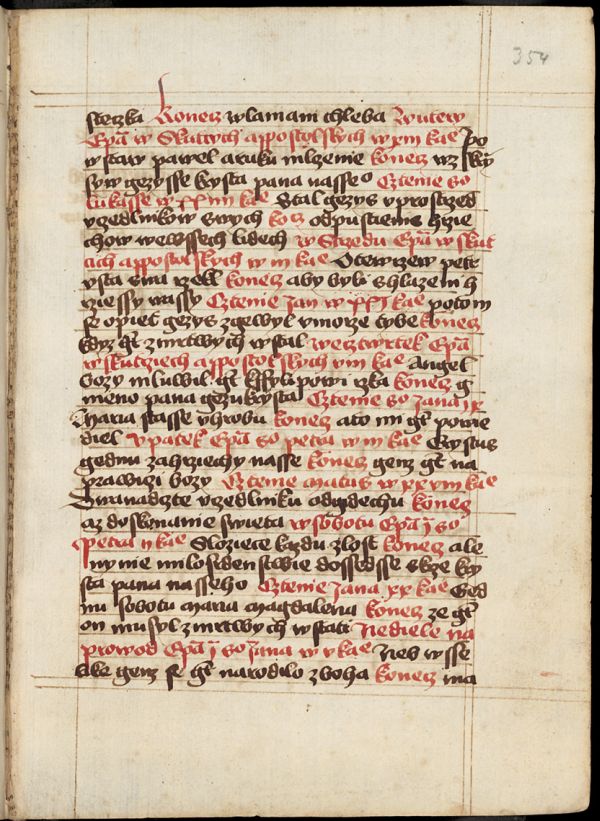 354
stezka Konecz wlamani chleba Wutery
Ep̄a w Skutcych appostolskych w xiii kae Po
wstaw pawel a ruku mlczenie konecz wzkrzy
syw gezysse krysta pana nasseo Cztenie so
lukasse w xxiiii kae Stal gezys vprostrzed
vczedlnikow swych kocz odpustienie hrzie
chow wewssech lidech w Strzedu Ep̄a w skut
cich appostolskych w iii kae Otewrzew petr
vsta swa rzekl konecz aby byli shlazeni h
rziessy wassy Cztenie Jan w xxi kae potom
se opiet gezys zgewyl vmorze tybe konecz
kdyz gt zmrtwych wstal Wecztwrtek Ep̄a
w skutciech appostolskych viii kae Angel
bozy mluwil gt k ffylipowi rzka konecz g
meno pana gezukrysta Cztenie so Jana xx
Maria stasse vhrobu konecz ato mi gt powie
diel Vpatek Ep̄a so petra w iii kae Krystus
gednu zahrziechy nasse konecz genz gt na
prawiczi bozy Cztenie Matus w xxviii kae
Gedenadzte vczedlniku odgidechu konecz
az doskonanie swieta w sobotu Ep̄a j so
Petra ii kae Sloziece kazdu zlost konecz ale
nynie milosrdenstwie dossedsse skrze kry
sta pana nasseho Cztenie Jana xx kae Ged
nu sobotu maria magdalena konecz ze gt
on musyl zmrtwych wstati Nediele na
prowod Ep̄a j so Jana w v kae Neb wsse
like genz se gt narodilo zboha konecz ma